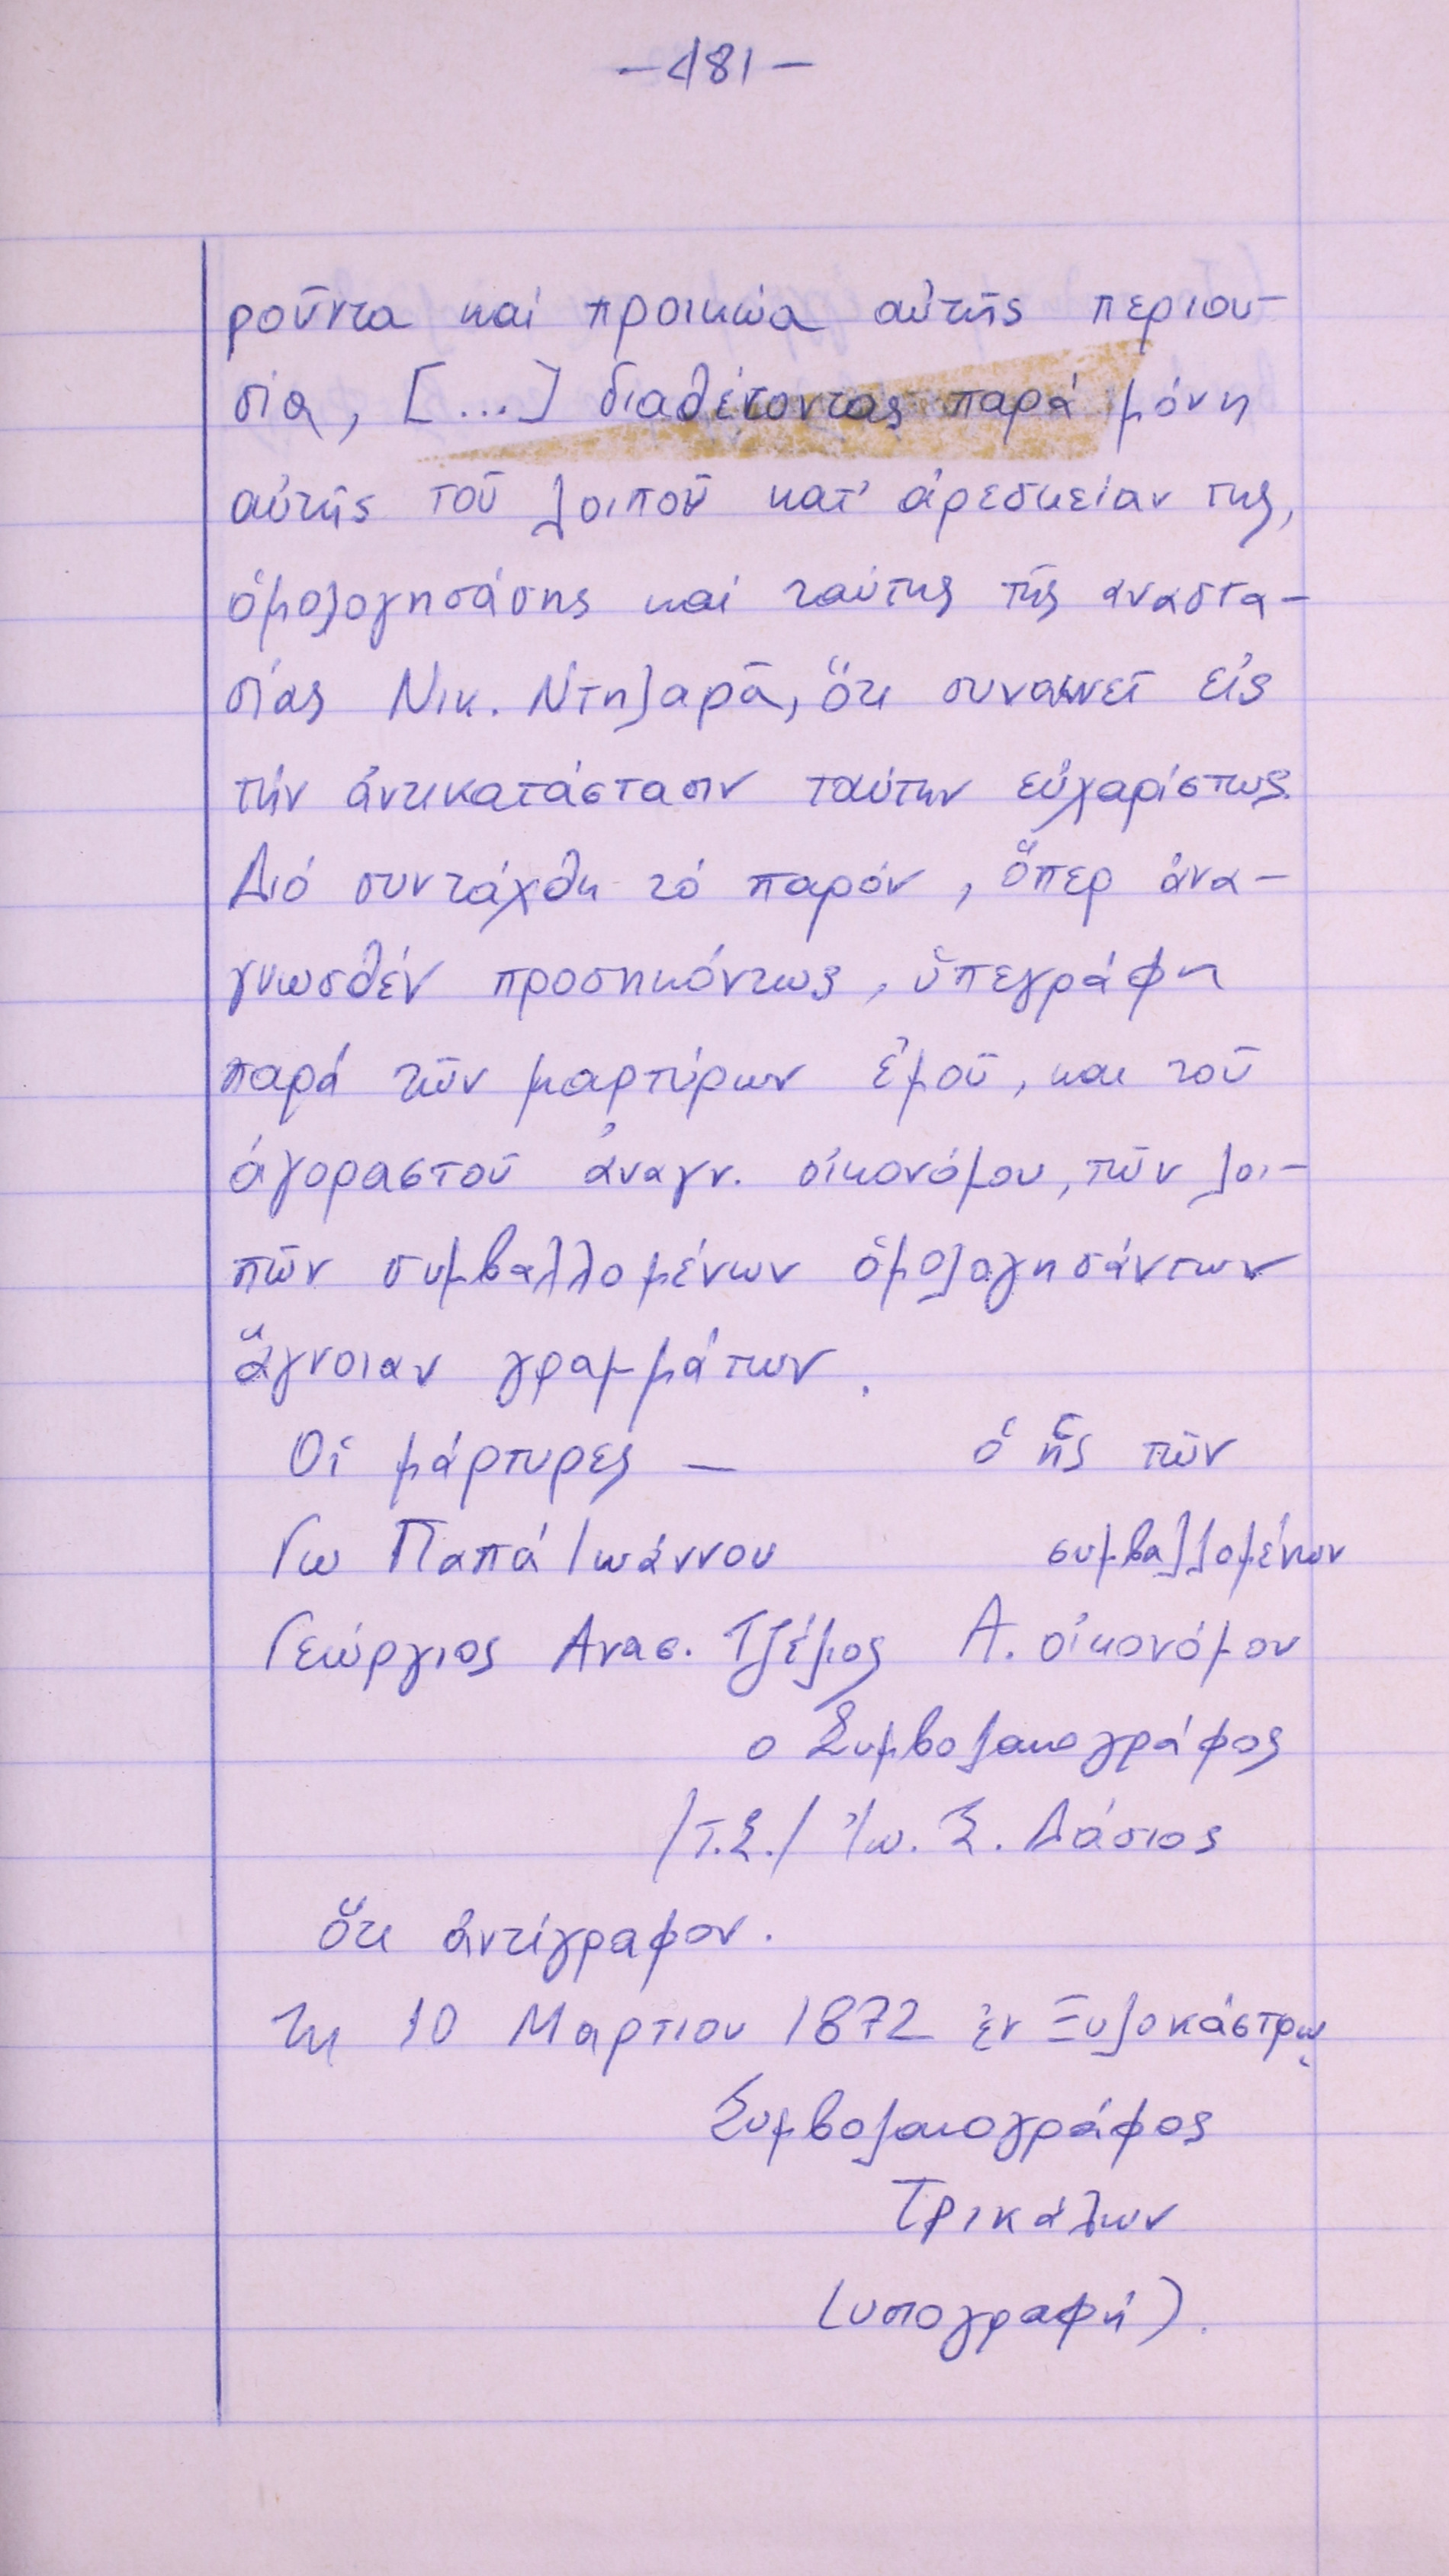 -481-
ροῦντα καί προικώα αὐτῆς περιου-
σία, [...] διαθέτοντας παρά μόνη
αὐτῆς τοῦ λοιποῦ κατ' ἀρεσκείαν της,
ὁμολογησάσης καί ταύτης τῆς αναστα-
σίας Νικ. Ντηλαρᾶ, ὅτι συναινεῖ εἰς
τήν ἀντικατάστασιν ταύτην εὐχαρίστως.
Διό συντάχθη τό παρόν, ὅπερ ἀνα-
γνωσθέν προσηκόντως, ὑπεγράφη
παρά τῶν μαρτύρων ἐμοῦ, και τοῦ
ἀγοραστοῦ ἀναγν. οἰκονόμου, τῶν λοι-
πῶν συμβαλλομένων ὁμολογησάντων
ἄγνοιαν γραμμάτων.
Οἱ μάρτυρες — ὁ ἧς τῶν
Γω Παπά Ιωάννου συμβαλλομένων
Γεώργιος Ανασ. Τζέμος Α. οἰκονόμου
ο Συμβολαιογράφος
/Τ.Σ./ Ἰω. Σ. Δάσιος
ὅτι ἀντίγραφον.
τη 10 Μαρτιου 1872 ἐν Ξυλοκάστρῳ
Συμβολαιογράφος
Τρικάλων
(υπογραφή).